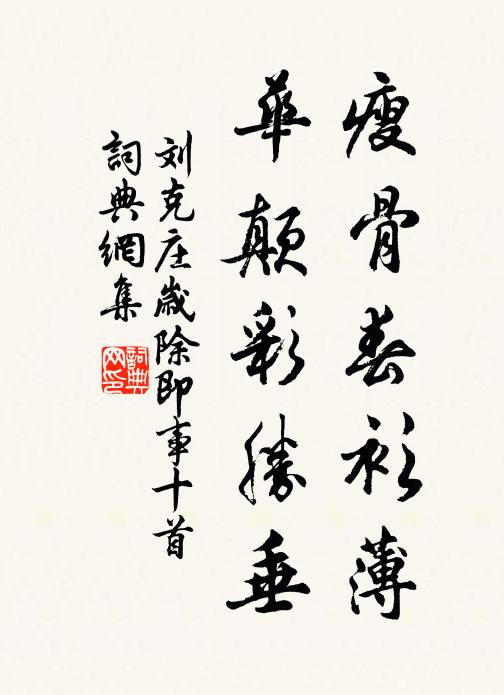 瘦骨春衫薄
華顛彩勝垂
刘克庄歲除即事十首
詞典網集
詞典網印